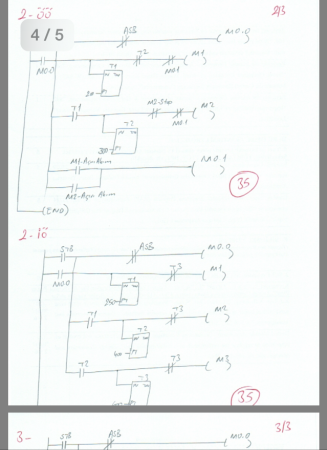 2-ÖÖ
2/3
4 / 5
ASB
M0.0
T2
M1
M0.0
T1
M0.1
IN TON
T1
M2-Stop
M2
M0.1
T2
IN TON
PT
M1-Aşırı Akım
M0.1
M2-Aşırı Akım
35
(END)
2-İÖ
STB
ASB
M0.0
M0.0
T3
M1
T1
T1
T3
M2
T2
T2
T3
M3
T3
35
3/3
3-
STB
ASB
M0.0